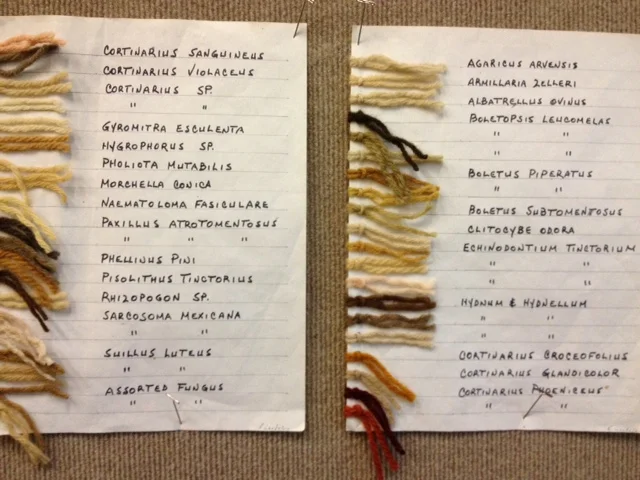 CORTINARIUS SANGUINEUS
CORTINARIUS VIOLACEUS
CORTINARIUS SP.
" "
GYROMITRA ESCULENTA
HYGROPHORUS SP.
PHOLIOTA MUTABILIS
MORCHELLA CONICA
NAEMATOLOMA FASICULARE
PAXILLUS ATROTOMENTOSUS
" "
PHELLINUS PINI
PISOLITHUS TINCTORIUS
RHIZOPOGON SP.
SARCOSOMA MEXICANA
" "
SUILLUS LUTEUS
" "
ASSORTED FUNGUS
" "
AGARICUS ARVENSIS
ARMILLARIA ZELLERI
ALBATRELLUS OVINUS
BOLETOPSIS LEUCOMELAS
" "
" "
BOLETUS PIPERATUS
" "
BOLETUS SUBTOMENTOSUS
CLITOCYBE ODORA
ECHINODONTIUM TINCTORIUM
" "
" "
HYDNUM & HYDNELLUM
" "
" "
CORTINARIUS CROCEOFOLIUS
CORTINARIUS GLANDICOLOR
CORTINARIUS PHOENICEUS
" "